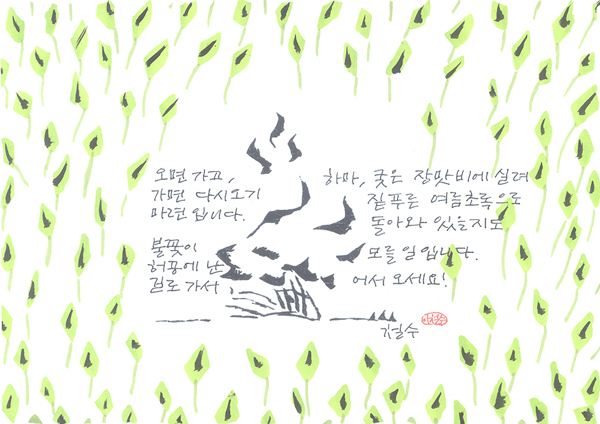 오면 가고,
가면 다시오기
마련입니다.
불꽃이
허공에 난
길로 가서
하마, 궂은 장맛비에 실려
짙푸른 여름초록으로
돌아와 있을지도
모를 일입니다.
어서 오세요!